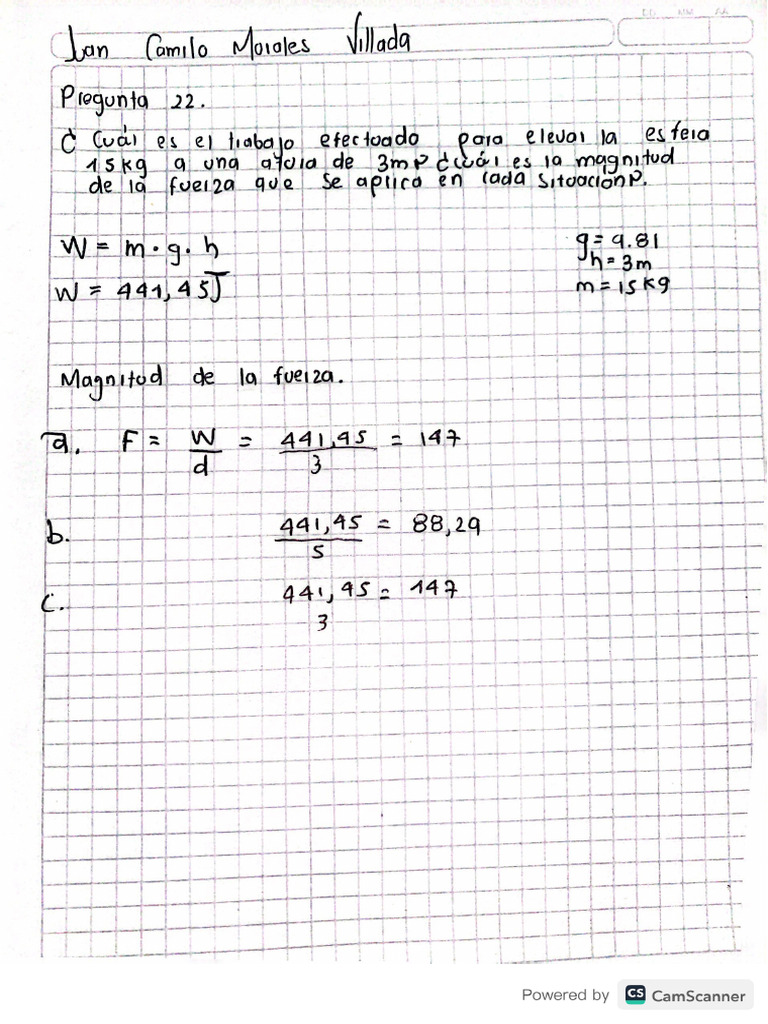 DD MM AA
Juan Camilo Morales Villada
Pregunta 22.
¿ Cuál es el trabajo efectuado para elevar la esfera
15kg a una altura de 3m? ¿cuál es la magnitud
de la fuerza que se aplica en cada situación?.
W = m·g·h
g = 9.81
h = 3m
W = 441,45J
m = 15kg
Magnitud de la fuerza.
a. F = W/d = 441,45/3 = 147
b. 441,45/5 = 88,29
c. 441,45 = 147
3
Powered by CS CamScanner